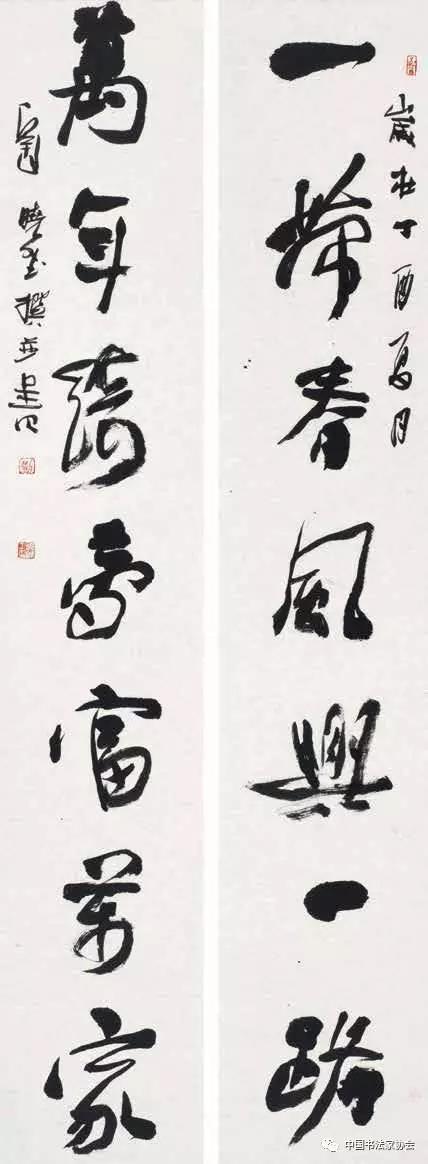 歲在丁酉夏月
一帶春風興一路
萬年綺夢富萬家
撰並書
中国书法家协会